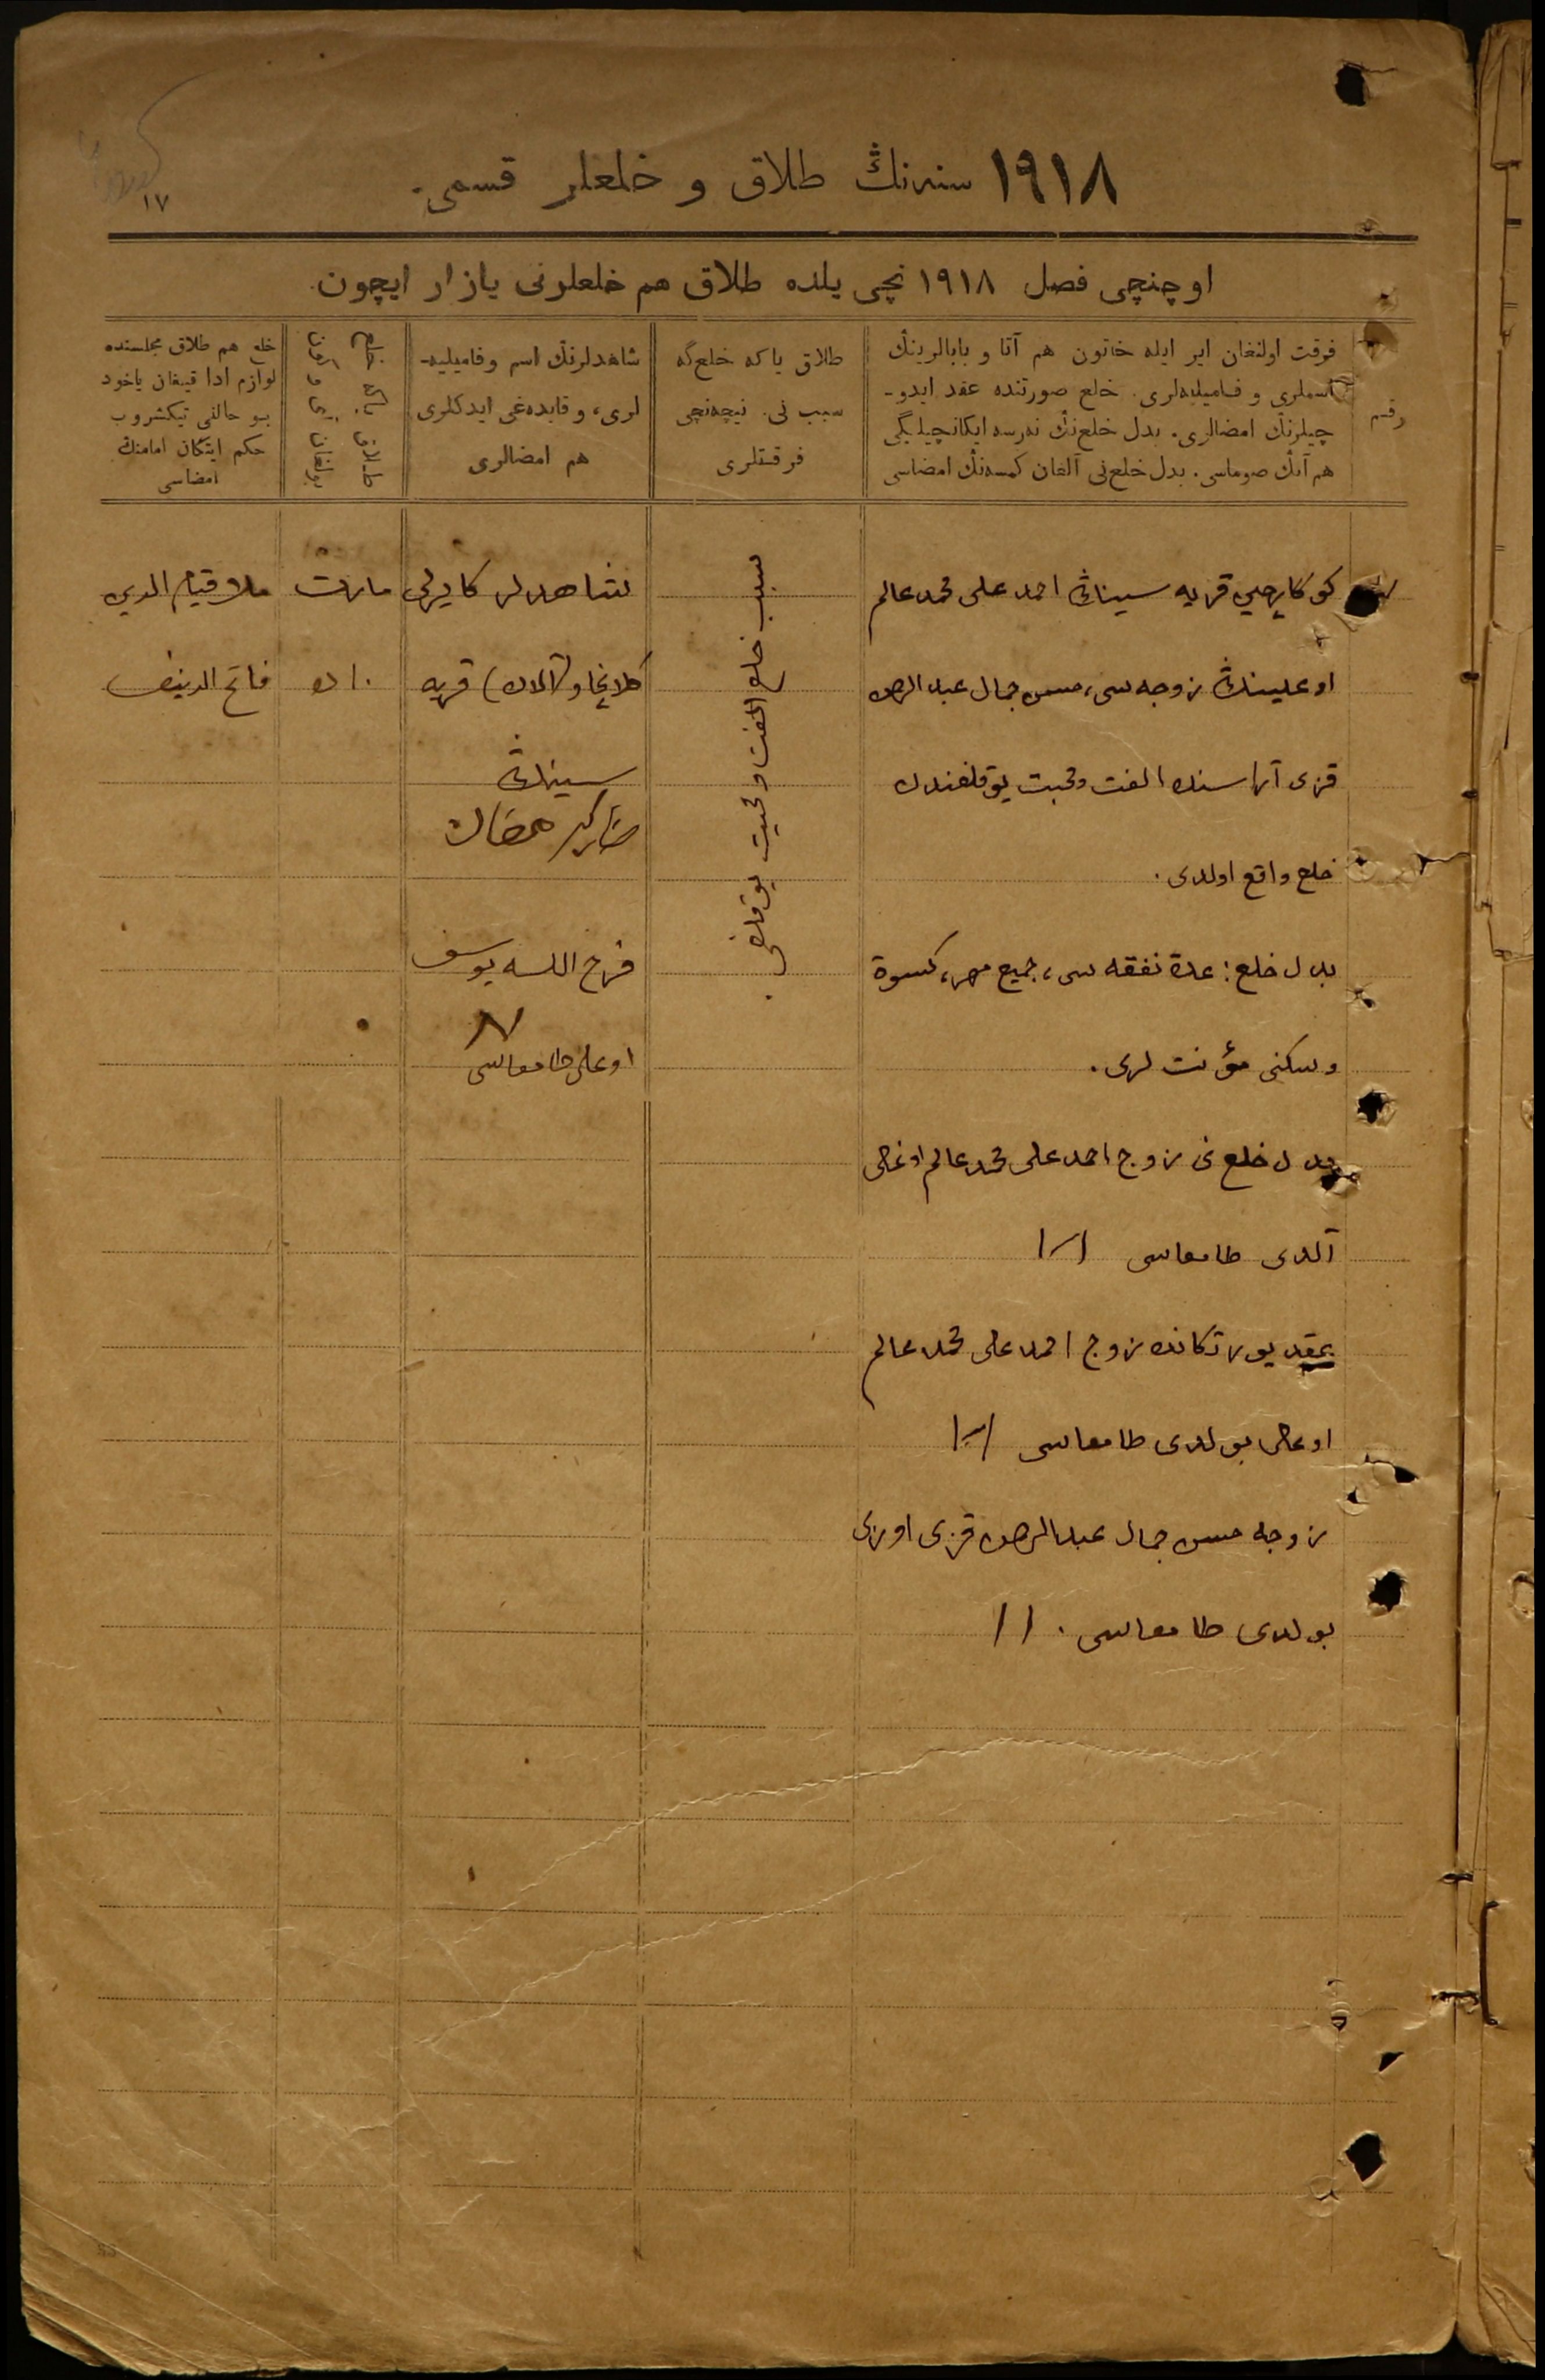 ١٧
١٩١٨ سنه‌نڭ طلاق و خلعلر قسمی.
اوچنچی فصل ١٩١٨ نچی یلده طلاق هم خلعلرنی یازار ایچون.
رقم
فرقت اولنغان ایر ایله خاتون هم آتا و بابالرینڭ
اسملری و فامیلیه‌لری. خلع صورتنده عقد ایدو-
چیلرنڭ امضالری. بدل خلع‌نڭ نه‌رسه ایکانچیلیگی
هم آنڭ صوماسی. بدل خلع‌نی آلغان کمسه‌نڭ امضاسی
طلاق یا که خلع‌گه
سبب نی. نیچه‌نچی
فرقتلری
شاهدلرنڭ اسم و فامیلیه-
لری، و قایده‌غی ایدکلری
هم امضالری
طلاق یاکه خلع
بولغان آی و کون
خلع هم طلاق مجلسنده
لوازم ادا قیلغان یاخود
بو حالنی تیکشروب
حکم ایتکان امامنڭ
امضاسی
قریه سینڭ احمد علی محمد عالم
اوغلیننڭ زوجه سی، حسن جمال عبدالرحمن
قزی آراسنده الفت و محبت یوقلغندن
خلع واقع اولدی.
بدل خلع: عدة نفقه سی، جمیع مهر، کسوة
و سکنی مؤنت لری.
بدل خلع نی زوج احمد علی محمد عالم اوغلی
آلدی طامغاسی
بعقد یورتکانده زوج احمد علی محمد عالم
اوغلی بولدی طامغاسی
زوجه حسن جمال عبدالرحمن قزی اوزی
بولدی طامغاسی . ١١
سبب خلع الفت و محبت یوقلغی.
شاهدلر
قریه
سینڭ
فرخ الله یوسف
اوغلی طامغاسی
مارت
١٠ ده
ملا قیام الدین
فاتح الدینف